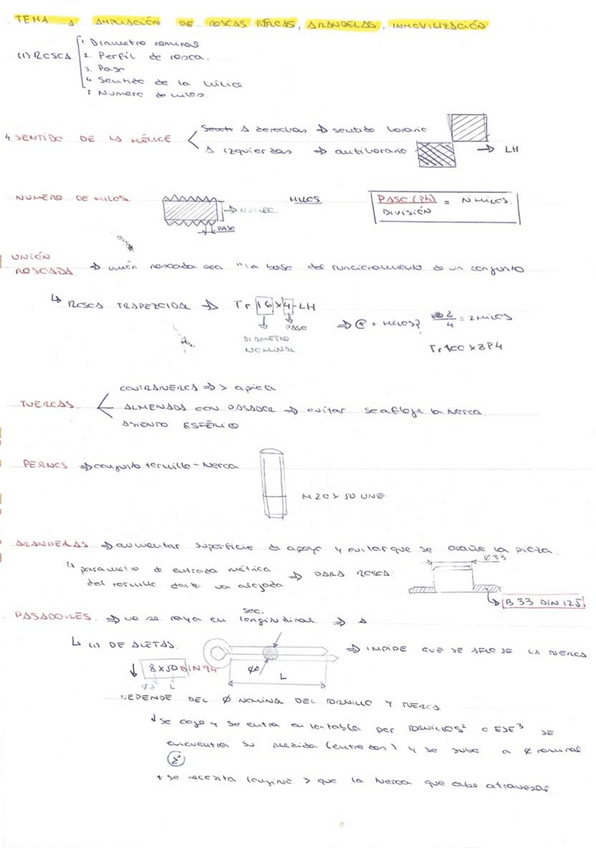 TEMA 1 AMPLIACIÓN DE ROSCAS TUERCAS, ARANDELAS, INMOVILIZACIÓN
(1) ROSCA
1. Diametro nominal
2. Perfil de rosca.
3. Paso
4. Sentido de la hélice
5 Numero de hilos.
4. SENTIDO DE LA HÉLICE
A derechas → sentido horario
A izquierdas → antihorario
→ LH
NUMERO DE HILOS
PASO
HILOS
PASO (Ph) = N HILOS.
DIVISIÓN
UNIÓN
ROSCADA → unión roscada sea "la base del funcionamiento de un conjunto
↳ ROSCA TRAPEZOIDAL → Tr 16 x 4 - LH
DIAMETRO
NOMINAL
PASO
HILOS?
4 = 2 HILOS
Tr 100 x 8P4
TUERCAS
CONTRATUERCA => > aprieta
ALMENADA CON PASADOR → evitar se afloje la tuerca
ASIENTO ESFÉRICO
PERNOS → conjunto tornillo - tuerca
M20 x 50 UNE
ARANDELAS → aumentar superficie de apoyo y evitar que se dañe la pieza.
↳ parametro de entrada métrica
del tornillo donde va alojada → PARA ROSCA:
Ø 33
B 33 DIN 125
PASADORES. → no se raya en sec. longitudinal →
↳ (1) DE ALETAS.
→ IMPIDE QUE SE AFLOJE LA TUERCA
8x50 DIN 94
L
L
DEPENDE DEL Ø NOMINAL DEL TORNILLO Y TUERCA
↓ se coge y se entra en la tabla por TORNILLOS² o EJE³ SE
encuentra su medida (entre dos) y se sube a Ø nominal
+ se necesita longitud > que la tuerca que debe atravesar